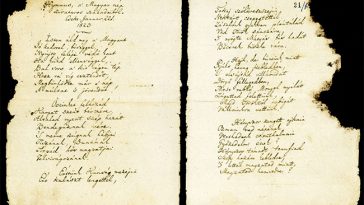 Hymnus, a' Magyar nép
zivataros századaiból.
Cseke, Januar. 22d.
1823.
Isten áldd meg a' Magyart
Jó kedvvel, bőséggel,
Nyújts feléje védő kart,
Ha küzd ellenséggel,
Bal sors akit régen tép,
Hozz rá víg esztendőt,
Megbünhödte már e' nép
A' multat 's jövendőt.
Őseinket felhozád
Kárpát szent bércére
Általad nyert szép hazát
Bendegúznak vére
'S merre zúgnak habjai
Tiszának, Dunának
Árpád hős magzatjai
Felvirágozának.
Értünk Kunság mezein
Ért kalászt lengettél,
Tokaj szőlővesszein
Nektárt csepegtettél.
Zászlónk gyakran plántálád
Vad török sáncára,
'S nyögte Mátyás bús hadát
Bécsnek büszke vára.
Hajh, de bűneink miatt
Gyúlt harag kebledben,
'S elsújtád villámidat
Dörgő fellegedben,
Most rabló Mongol nyilát
Zúgattad felettünk,
Majd töröktől rabigát
Vállainkra vettünk.
Hányszor zengett ajkain
Ozman vad népének
Vert hadunk csonthalmain
Győzedelmi ének!
Hányszor támadt tenfiad
Szép hazám kebledre,
'S lettél magzatod miatt
Magzatod hamvvedre!